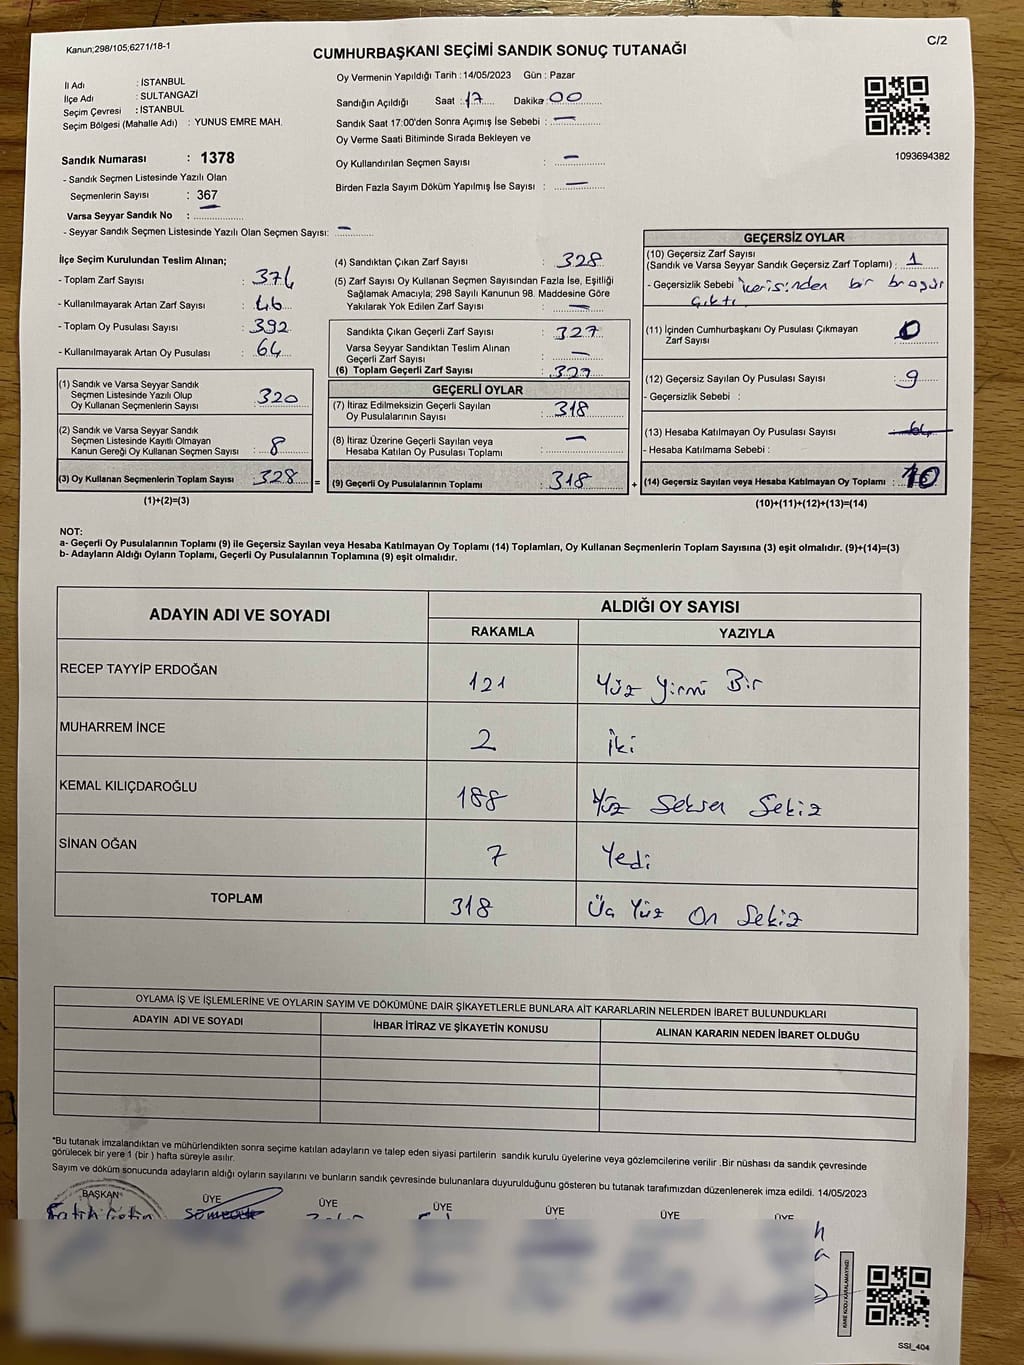 Kanun;298/105;6271/18-1
C/2
CUMHURBAŞKANI SEÇİMİ SANDIK SONUÇ TUTANAĞI
İl Adı : İSTANBUL
İlçe Adı : SULTANGAZİ
Seçim Çevresi : İSTANBUL
Seçim Bölgesi (Mahalle Adı) : YUNUS EMRE MAH.
Sandık Numarası : 1378
- Sandık Seçmen Listesinde Yazılı Olan
Seçmenlerin Sayısı : 367
Varsa Seyyar Sandık No : ..............
- Seyyar Sandık Seçmen Listesinde Yazılı Olan Seçmen Sayısı: —
Oy Vermenin Yapıldığı Tarih : 14/05/2023 Gün : Pazar
Sandığın Açıldığı Saat : 17 Dakika : 00
Sandık Saat 17:00'den Sonra Açımış İse Sebebi : —
Oy Verme Saati Bitiminde Sırada Bekleyen ve
Oy Kullandırılan Seçmen Sayısı : —
Birden Fazla Sayım Döküm Yapılmış İse Sayısı : —
1093694382
İlçe Seçim Kurulundan Teslim Alınan;
- Toplam Zarf Sayısı : 374
- Kullanılmayarak Artan Zarf Sayısı : 46
- Toplam Oy Pusulası Sayısı : 392
- Kullanılmayarak Artan Oy Pusulası : 64
(1) Sandık ve Varsa Seyyar Sandık
Seçmen Listesinde Yazılı Olup
Oy Kullanan Seçmenlerin Sayısı : 320
(2) Sandık ve Varsa Seyyar Sandık
Seçmen Listesinde Kayıtlı Olmayan
Kanun Gereği Oy Kullanan Seçmen Sayısı : 8
(3) Oy Kullanan Seçmenlerin Toplam Sayısı : 328 =
(1)+(2)=(3)
(4) Sandıktan Çıkan Zarf Sayısı : 328
(5) Zarf Sayısı Oy Kullanan Seçmen Sayısından Fazla İse, Eşitliği
Sağlamak Amacıyla; 298 Sayılı Kanunun 98. Maddesine Göre
Yakılarak Yok Edilen Zarf Sayısı : —
Sandıkta Çıkan Geçerli Zarf Sayısı : 327
Varsa Seyyar Sandıktan Teslim Alınan
Geçerli Zarf Sayısı : —
(6) Toplam Geçerli Zarf Sayısı : 327
GEÇERLİ OYLAR
(7) İtiraz Edilmeksizin Geçerli Sayılan
Oy Pusulalarının Sayısı : 318
(8) İtiraz Üzerine Geçerli Sayılan veya
Hesaba Katılan Oy Pusulası Toplamı : —
(9) Geçerli Oy Pusulalarının Toplamı : 318 +
GEÇERSİZ OYLAR
(10) Geçersiz Zarf Sayısı
(Sandık ve Varsa Seyyar Sandık Geçersiz Zarf Toplamı) : 1
- Geçersizlik Sebebi içerisinden bir broşür
çıktı
(11) İçinden Cumhurbaşkanı Oy Pusulası Çıkmayan
Zarf Sayısı : 0
(12) Geçersiz Sayılan Oy Pusulası Sayısı : 9
- Geçersizlik Sebebi :
(13) Hesaba Katılmayan Oy Pusulası Sayısı : 64
- Hesaba Katılmama Sebebi :
(14) Geçersiz Sayılan veya Hesaba Katılmayan Oy Toplamı : 10
(10)+(11)+(12)+(13)=(14)
NOT:
a- Geçerli Oy Pusulalarının Toplamı (9) ile Geçersiz Sayılan veya Hesaba Katılmayan Oy Toplamı (14) Toplamları, Oy Kullanan Seçmenlerin Toplam Sayısına (3) eşit olmalıdır. (9)+(14)=(3)
b- Adayların Aldığı Oyların Toplamı, Geçerli Oy Pusulalarının Toplamına (9) eşit olmalıdır.
ADAYIN ADI VE SOYADI
ALDIĞI OY SAYISI
RAKAMLA YAZIYLA
RECEP TAYYİP ERDOĞAN 121 Yüz Yirmi Bir
MUHARREM İNCE 2 İki
KEMAL KILIÇDAROĞLU 188 Yüz Seksen Sekiz
SİNAN OĞAN 7 Yedi
TOPLAM 318 Üç Yüz On Sekiz
OYLAMA İŞ VE İŞLEMLERİNE VE OYLARIN SAYIM VE DÖKÜMÜNE DAİR ŞİKAYETLERLE BUNLARA AİT KARARLARIN NELERDEN İBARET BULUNDUKLARI
ADAYIN ADI VE SOYADI İHBAR İTİRAZ VE ŞİKAYETİN KONUSU ALINAN KARARIN NEDEN İBARET OLDUĞU
*Bu tutanak imzalandıktan ve mühürlendikten sonra seçime katılan adayların ve talep eden siyasi partilerin sandık kurulu üyelerine veya gözlemcilerine verilir .Bir nüshası da sandık çevresinde
görülecek bir yere 1 (bir ) hafta süreyle asılır.
Sayım ve döküm sonucunda adayların aldığı oyların sayılarını ve bunların sandık çevresinde bulunanlara duyurulduğunu gösteren bu tutanak tarafımızdan düzenlenerek imza edildi. 14/05/2023
BAŞKAN ÜYE ÜYE ÜYE ÜYE ÜYE ÜYE
KARE KODU KARALAMAYINIZ!
SSI_404